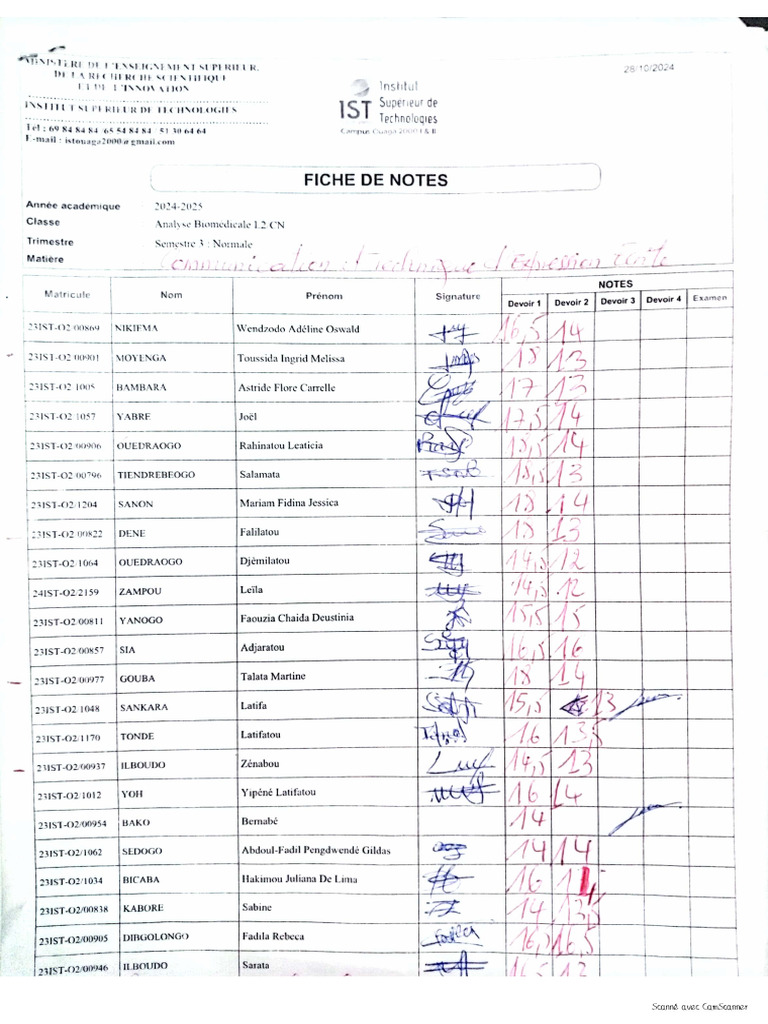 MINISTERE DE L'ENSEIGNEMENT SUPERIEUR,
DE LA RECHERCHE SCIENTIFIQUE
ET DE L'INNOVATION
INSTITUT SUPERIEUR DE TECHNOLOGIES
Tel : 69 84 84 84 65 54 84 84 / 51 30 64 64
E-mail : istouaga2000@gmail.com
28/10/2024
IST Institut Supérieur de Technologies
Campus Ouaga 2000 I & II
FICHE DE NOTES
Année académique 2024-2025
Classe Analyse Biomedicale L2 CN
Trimestre Semestre 3 : Normale
Matière Communication et technique d'Expression Ecrite
Matricule Nom Prénom Signature NOTES
Devoir 1 Devoir 2 Devoir 3 Devoir 4 Examen
23IST-O2/00869 NIKIEMA Wendzodo Adéline Oswald 16,5 14
23IST-O2/00901 MOYENGA Toussida Ingrid Melissa 18 13
23IST-O2/1005 BAMBARA Astride Flore Carrelle 17 13
23IST-O2/1057 YABRE Joël 17,5 14
23IST-O2/00906 OUEDRAOGO Rahinatou Leaticia 18,5 14
23IST-O2/00796 TIENDREBEOGO Salamata 18,5 13
23IST-O2/1204 SANON Mariam Fidina Jessica 18 14
23IST-O2/00822 DENE Falilatou 18 13
23IST-O2/1064 OUEDRAOGO Djémilatou 14,5 12
24IST-O2/2159 ZAMPOU Leïla 14,5 12
23IST-O2/00811 YANOGO Faouzia Chaida Deustinia 15,5 15
23IST-O2/00857 SIA Adjaratou 16,5 16
23IST-O2/00977 GOUBA Talata Martine 18 14
23IST-O2/1048 SANKARA Latifa 15,5 13
23IST-O2/1170 TONDE Latifatou 16 13,5
23IST-O2/00937 ILBOUDO Zénabou 14,5 13
23IST-O2/1012 YOH Yipéné Latifatou 16 14
23IST-O2/00954 BAKO Bernabé 14
23IST-O2/1062 SEDOGO Abdoul-Fadil Pengdwendé Gildas 14 14
23IST-O2/1034 BICABA Hakimou Juliana De Lima 16
23IST-O2/00838 KABORE Sabine 14 13,5
23IST-O2/00905 DIBGOLONGO Fadila Rebeca 16,5 16,5
23IST-O2/00946 ILBOUDO Sarata 16,5
Scanné avec CamScanner